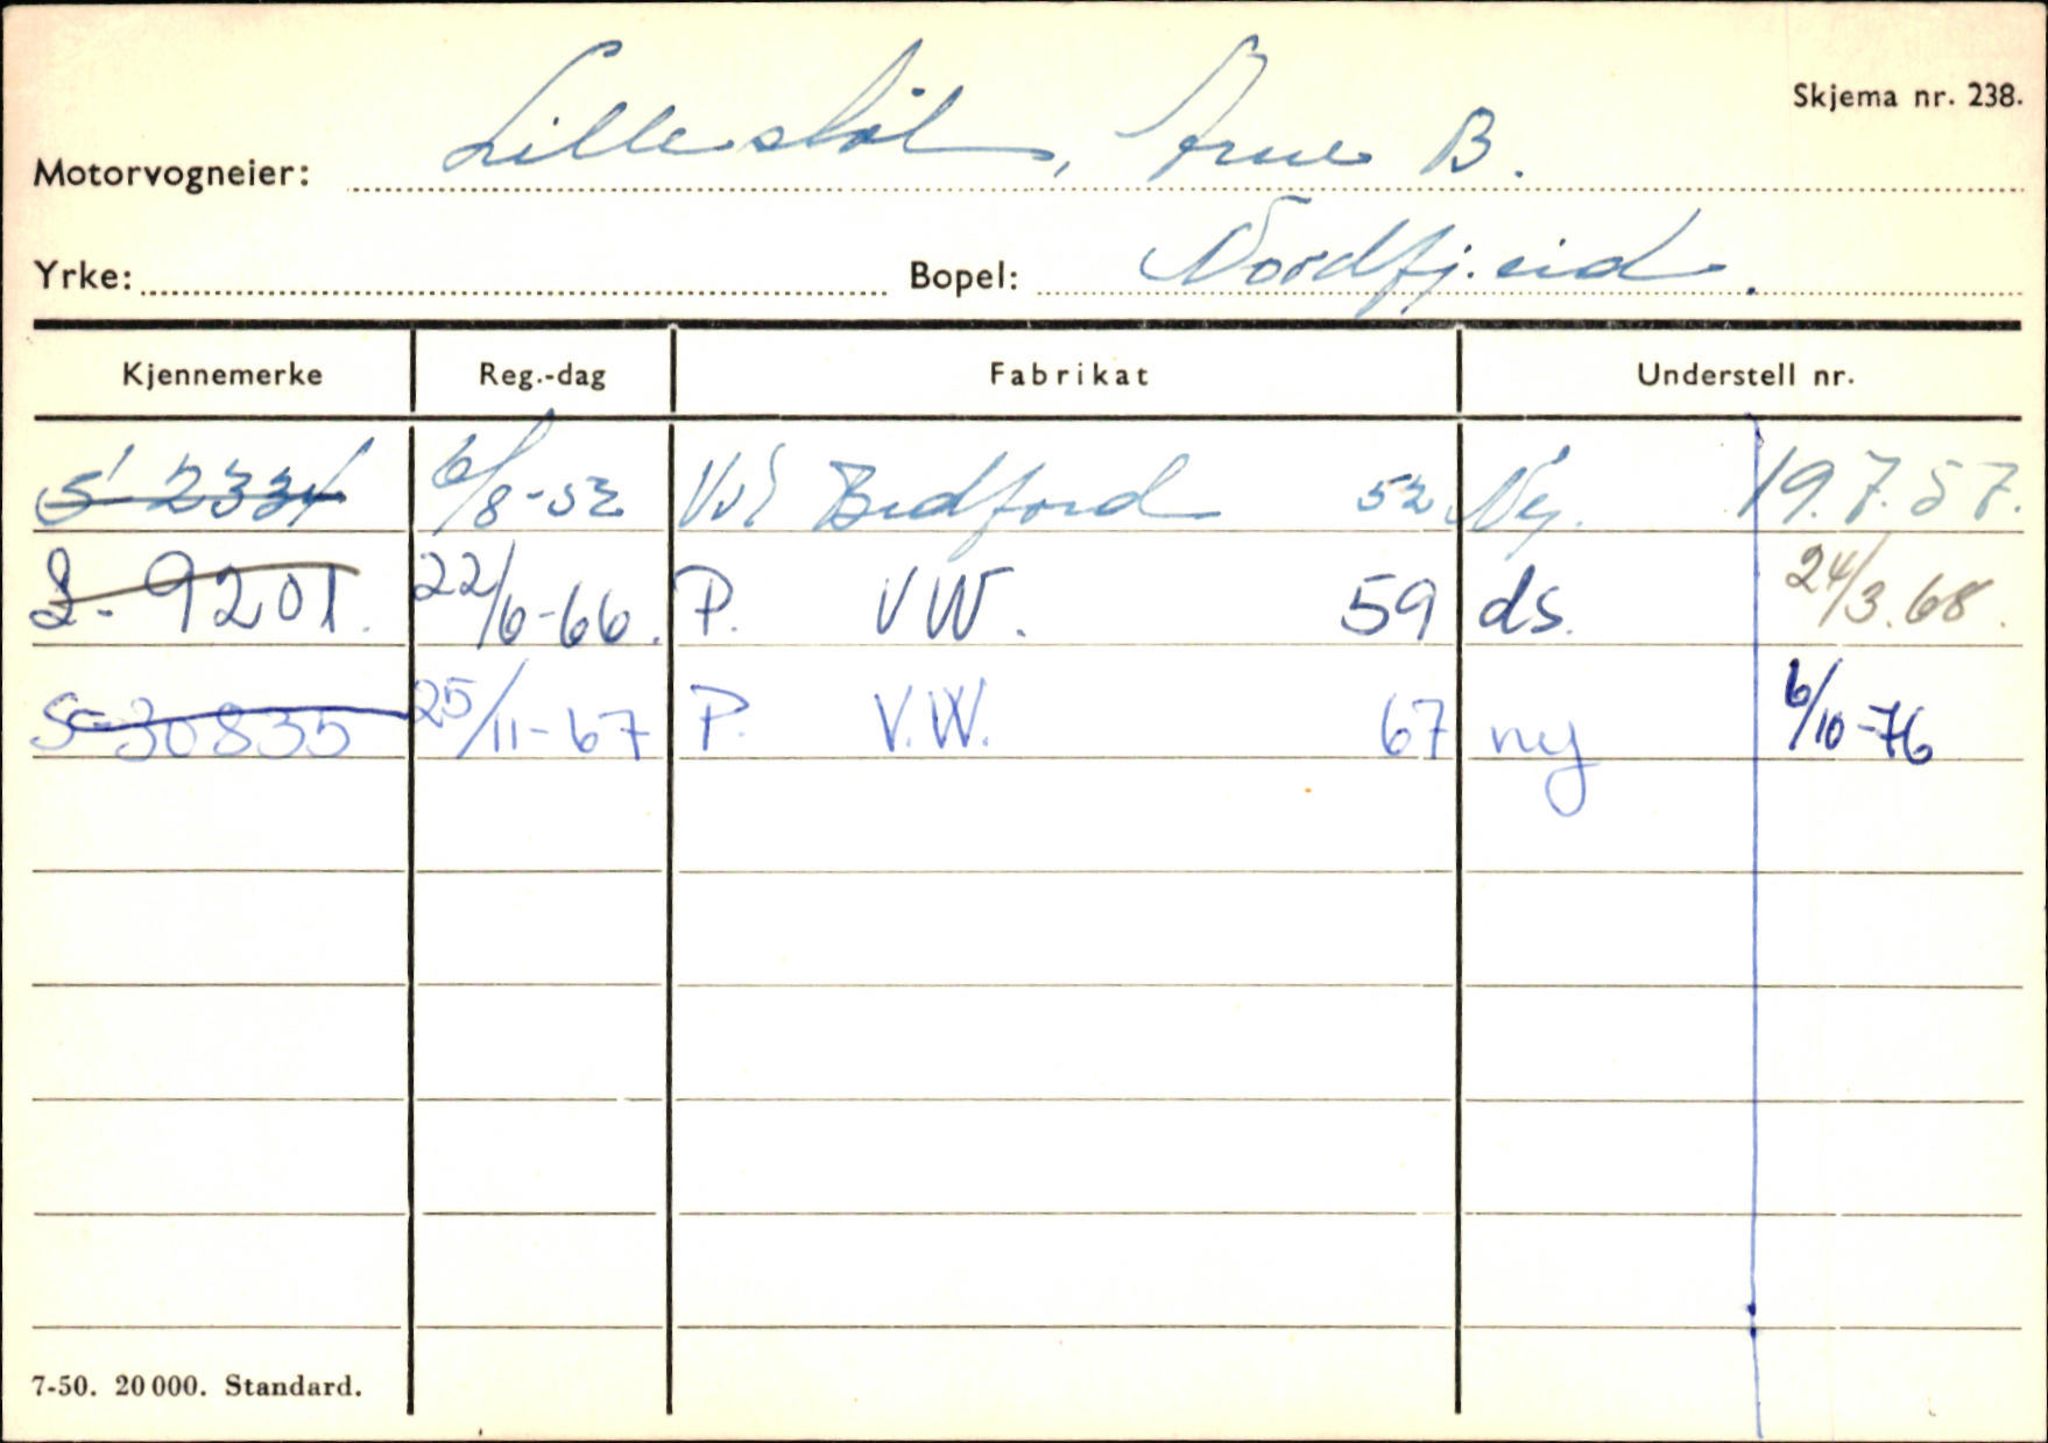 Skjema nr. 238.
Motorvogneier: Lillestøl, Arne B.
Yrke: Bopel: Nordfj.eid.
Kjennemerke Reg.-dag Fabrikat Understell nr.
S 2334 6/8-52 Bedford 52 Ny. 19.7.57.
9201. 22/6-66. P. VW. 59 ds. 24/3.68.
S-30835 25/11-67 P. V.W. 67 ny 6/10-76
7-50. 20 000. Standard.